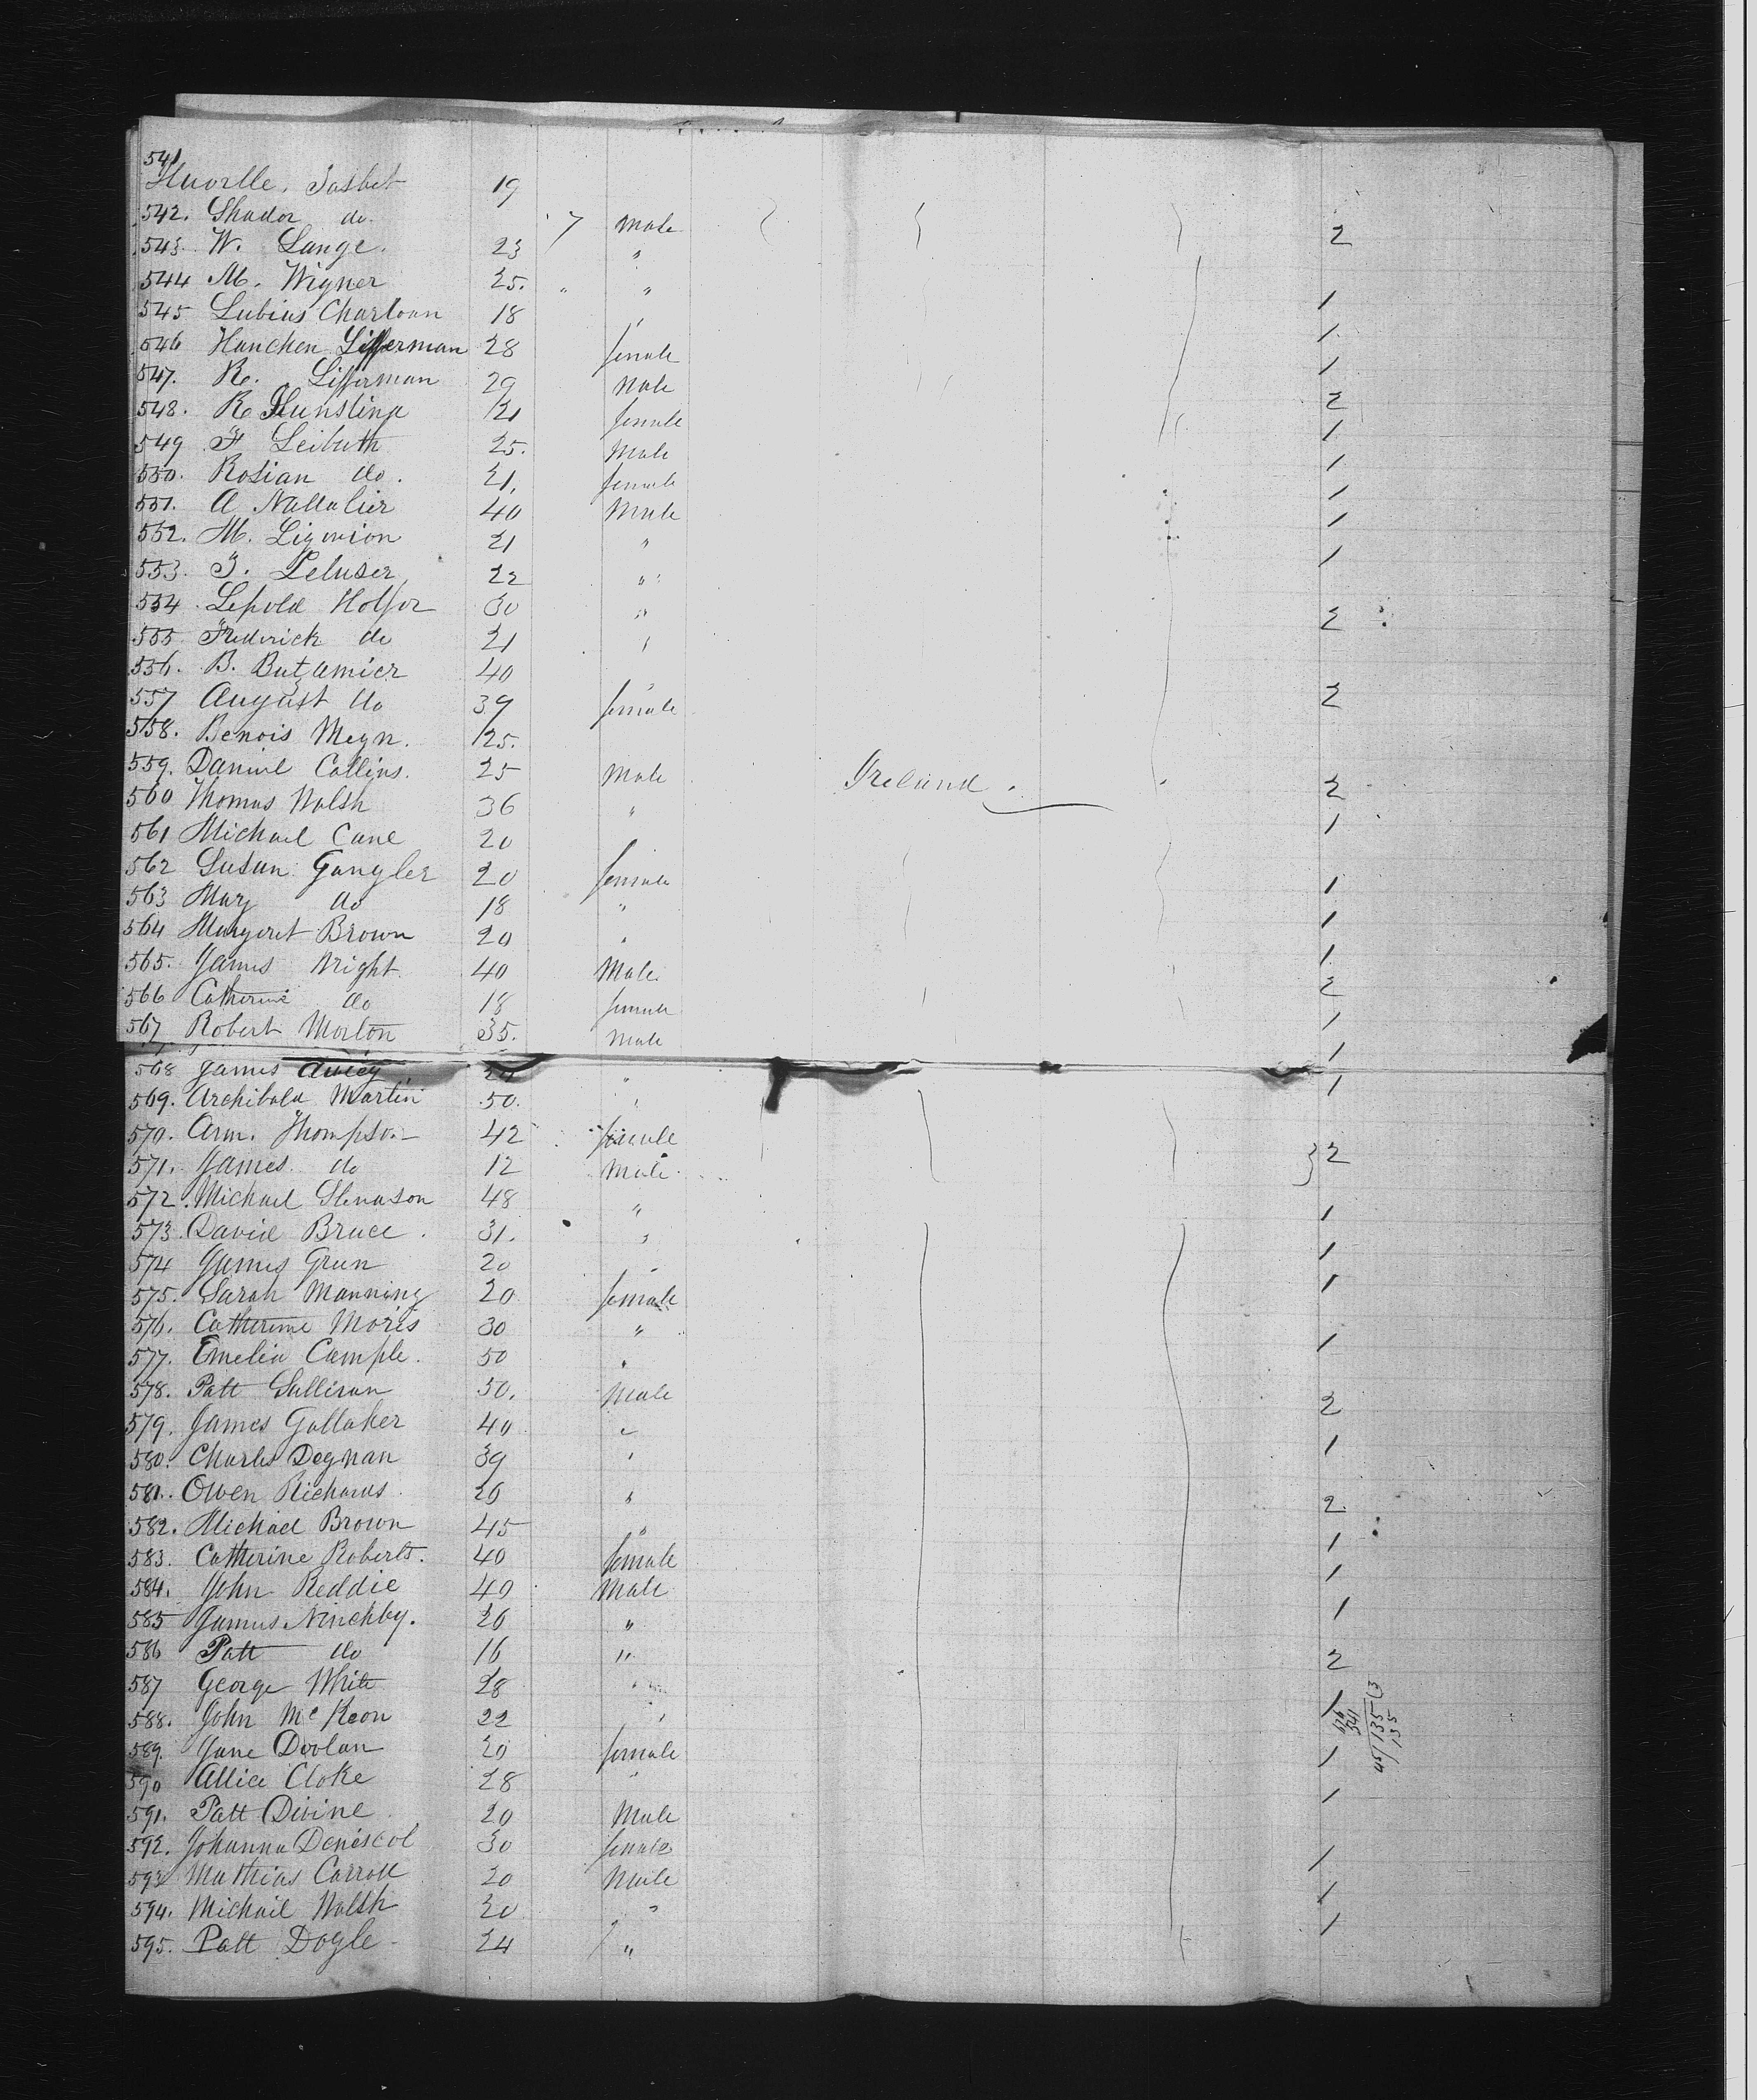 541
Huorlle. Josbet 19
542. Shador do. 7 Male 2
543. W. Lange. 23 "
544 M. Wigner 25. " " 1
545 Lubius Charloan 18 " 1
546 Hanchen Lifferman 28 female 1
547. R. Lifferman 29 Male 2
548. R Hunstina 21 female 1
549 F Leibuth 25. Male 1
550. Rosian do. 21. female 1
551. A Nattalier 40 Male 1
552. M. Ligurion 21 " 1
553. J. Peluser 22 "
554. Lepold Holfor 30 " 2
555 Frederick do 21 "
556. B. Butzamier 40 "
557 August do 39 female 2
558. Benois Megn. 25.
559. Daniel Collins. 25 Male Ireland. 2
560 Thomas Walsh 36 " 1
561 Michael Cane 20
562 Susan Gangler 20 female 1
563 Mary do 18 " 1
564 Margeret Brown 20 " 1
565. James Wright. 40 Male 2
566 Catherine do 18 female 1
567 Robert Morton 35. Male 1
568 James " 1
569. Archibald Martin 50. "
570. Ann. Thompson 42 female } 2
571. James. do 12 Male
572. Michael Glenason 48 " 1
573. David Bruce. 31. " 1
574 James Grean 20 " 1
575. Sarah Manning 20 female
576. Catherine Moris 30 " 1
577. Emelia Cample. 50 "
578. Patt Sullivan 50. Male 2
579. James Gallaher 40 " 1
580. Charles Degnan 39 "
581. Owen Richards. 26 " 2
582. Michael Brown 45 " 1
583. Catherine Roberts. 40 female 1
584. John Reddie 40 Male
585 James Ninchby. 26 " 1
586 Patt do 16 " 2
587 George White 28 " 1
588. John McKeon 22 "
589. Jane Doolan 20 female 1
590 Allice Cloke 28 " 1
591. Patt Divine 20 Male
592. Johanna Deniscol 30 female 1
593 Mathias Carroll 20 Male 1
594. Michail Walsh 20 " 1
595. Patt Dogle 24 "
541
45/135(3
135